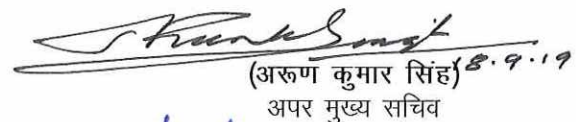 (अरूण कुमार सिंह) 18.9.19
अपर मुख्य सचिव